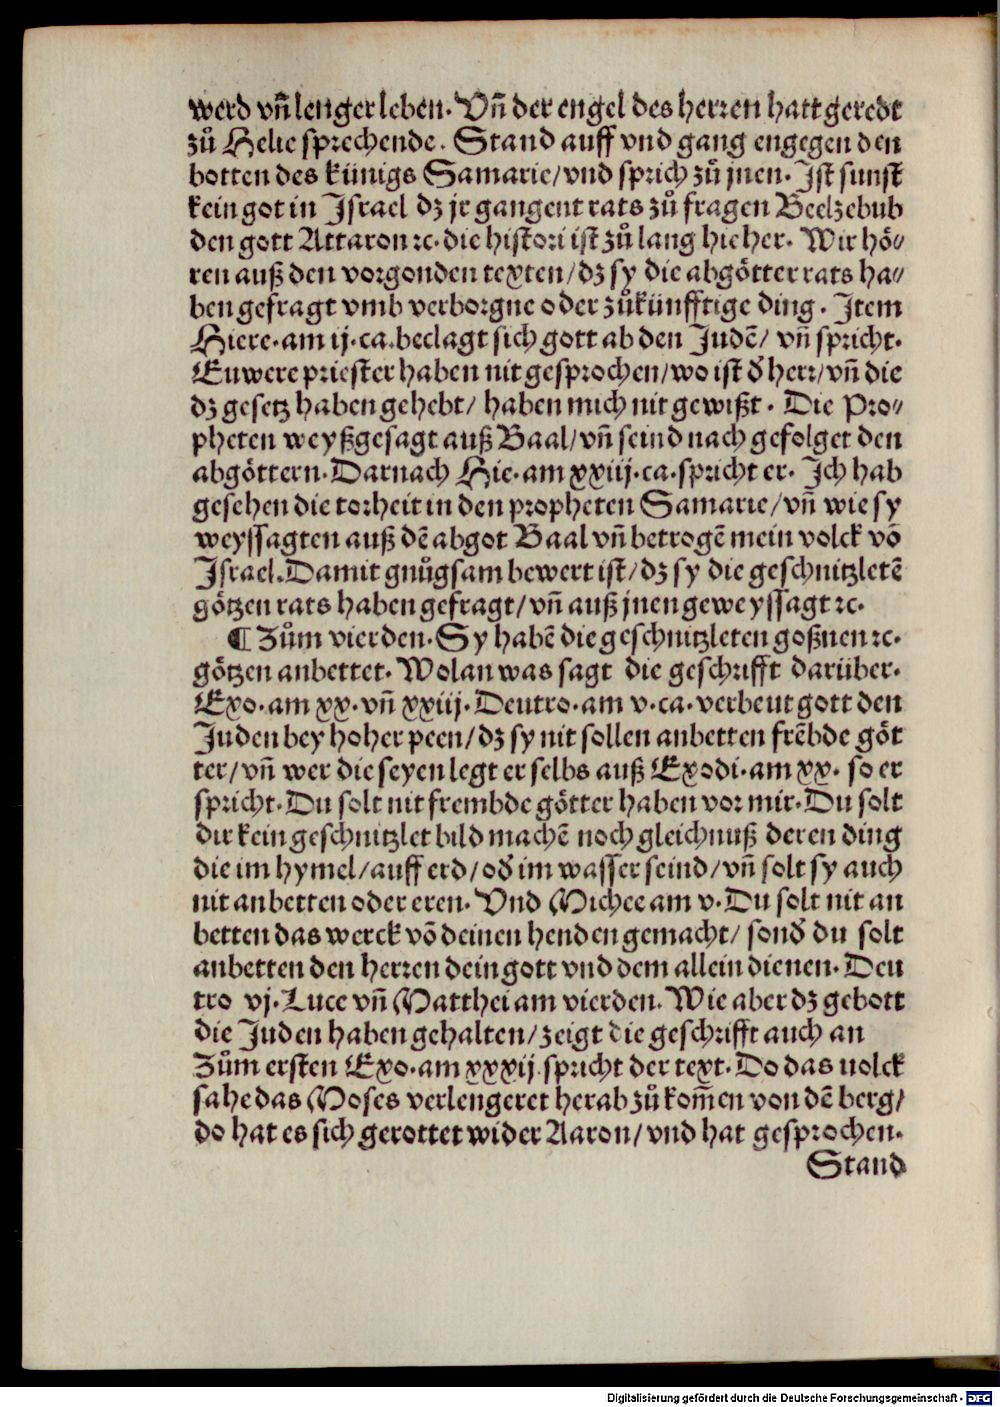 werd vñ lenger leben. Vñ der engel des herren hatt geredt
zů Helie sprechende. Stand auff vnd gang engegen den
botten des künigs Samarie/vnd sprich zů jnen. Ist sunst
kein got in Israel dz jr gangent rats zů fragen Beelzebub
den gott Attaron ꝛc. die histori ist zů lang hieher. Wir hö⸗
ren auß den vorgonden texten/dz sy die abgötter rats ha⸗
ben gefragt vmb verborgne oder zůkünfftige ding. Item
Hiere. am ij. ca. beclagt sich gott ab den Judē/ vñ spricht.
Euwere priester haben nit gesprochen/wo ist ð herr/vñ die
dz gesetz haben gehebt/ haben mich nit gewißt. Die Pro⸗
pheten weyßgesagt auß Baal/vñ seind nach gefolget den
abgöttern. Darnach Hie. am xxiij. ca. spricht er. Ich hab
gesehen die torheit in den propheten Samarie/vñ wie sy
weyssagten auß dē abgot Baal vñ betrogē mein volck vō
Israel. Damit gnůgsam bewert ist/dz sy die geschnitzletē
götzen rats haben gefragt/vñ auß jnen geweyssagt ꝛc.
¶ Zům vierden. Sy habē die geschnitzleten goßnen ꝛc.
götzen anbettet. Wolan was sagt die geschrifft darüber.
Exo. am xx. vñ xxiij. Deutro. am v. ca. verbeut gott den
Juden bey hoher peen/dz sy nit sollen anbetten frēbde göt
ter/vñ wer die seyen legt er selbs auß Exodi. am xx. so er
spricht. Du solt nit frembde götter haben vor mir. Du solt
dir kein geschnitzlet bild machē noch gleichnuß deren ding
die im hymel/auff erd/oð im wasser seind/vñ solt sy auch
nit anbetten oder eren. Vnd Michee am v. Du solt nit an
betten das werck vō deinen henden gemacht/ sonð du solt
anbetten den herren dein gott vnd dem allein dienen. Deu
tro vj. Luce vñ Matthei am vierden. Wie aber dz gebott
die Juden haben gehalten/zeigt die geschrifft auch an
Zům ersten Exo. am xxxij spricht der text. Do das uolck
sahe das Moses verlengeret herab zů kom̄en von dē berg/
do hat es sich gerottet wider Aaron/vnd hat gesprochen.
Stand
Digitalisierung gefördert durch die Deutsche Forschungsgemeinschaft - DFG